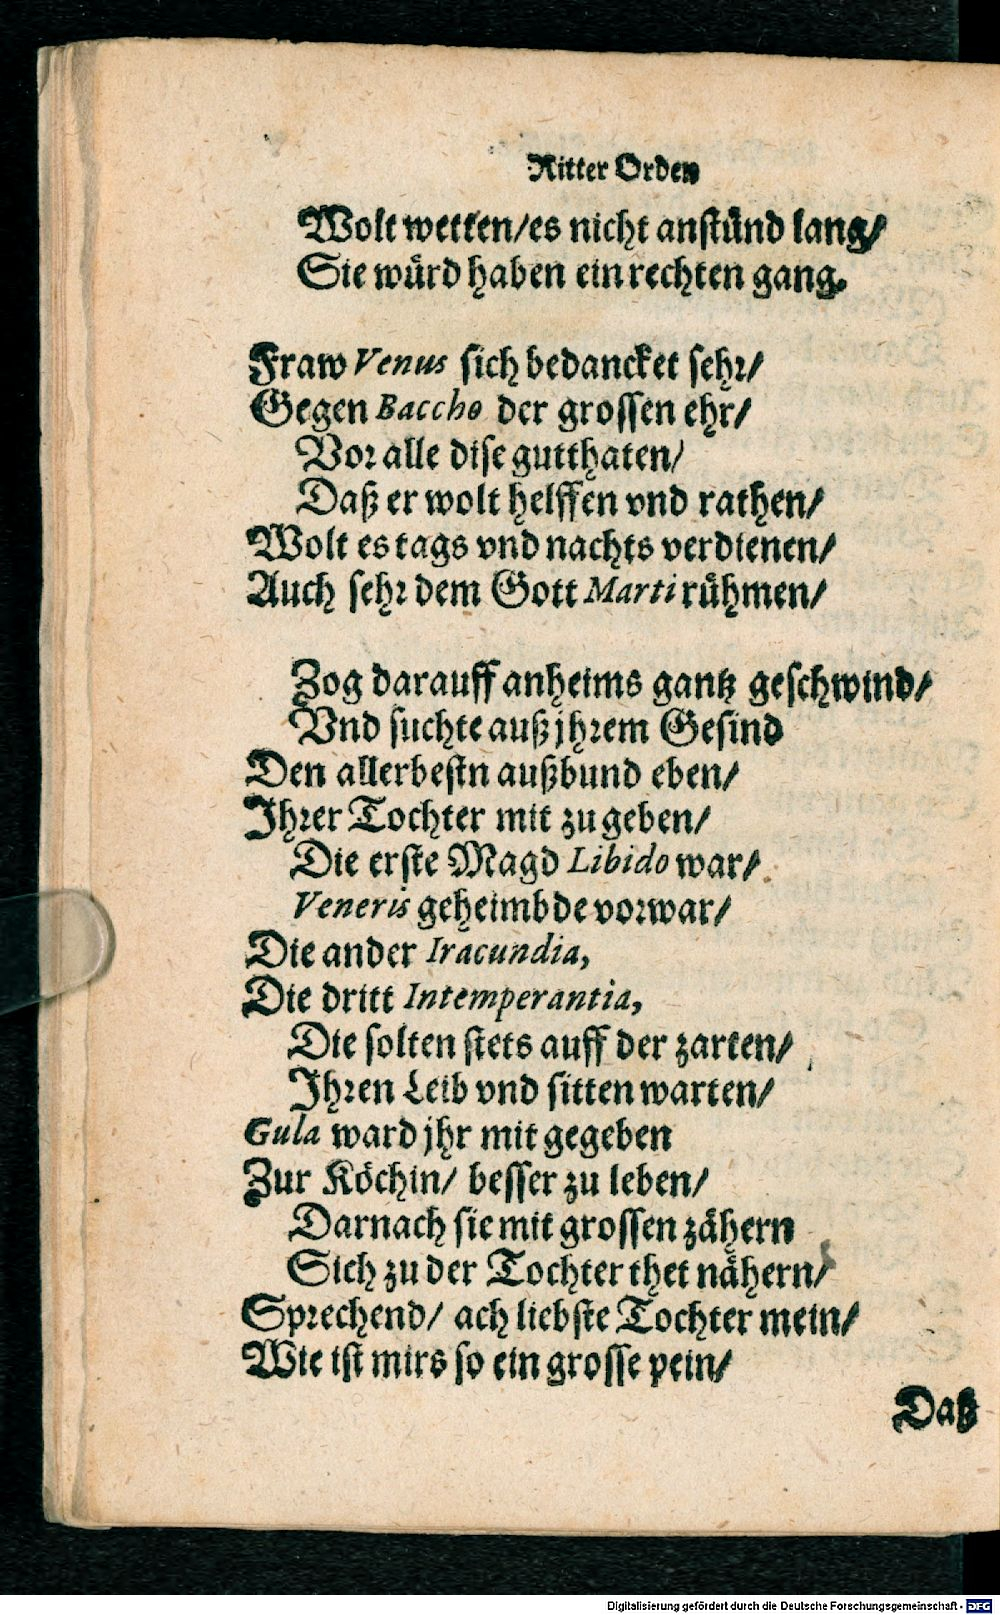 Ritter Orden
Wolt wetten/es nicht anstünd lang/
Sie würd haben ein rechten gang.
Fraw Venus sich bedancket sehr/
Gegen Baccho der grossen ehr/
Vor alle dise gutthaten/
Daß er wolt helffen vnd rathen/
Wolt es tags vnd nachts verdienen/
Auch sehr dem Gott Marti rühmen/
Zog darauff anheims gantz geschwind/
Vnd suchte auß jhrem Gesind
Den allerbestn außbund eben/
Ihrer Tochter mit zu geben/
Die erste Magd Libido war/
Veneris geheimbde vorwar/
Die ander Iracundia,
Die dritt Intemperantia,
Die solten stets auff der zarten/
Ihren Leib vnd sitten warten/
Gula ward jhr mit gegeben
Zur Köchin/ besser zu leben/
Darnach sie mit grossen zähern
Sich zu der Tochter thet nähern/
Sprechend/ ach liebste Tochter mein/
Wie ist mirs so ein grosse pein/
Daß
Digitalisierung gefördert durch die Deutsche Forschungsgemeinschaft - DFG